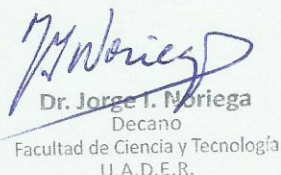 JJNoriega
Dr. Jorge I. Noriega
Decano
Facultad de Ciencia y Tecnología
U.A.D.E.R.